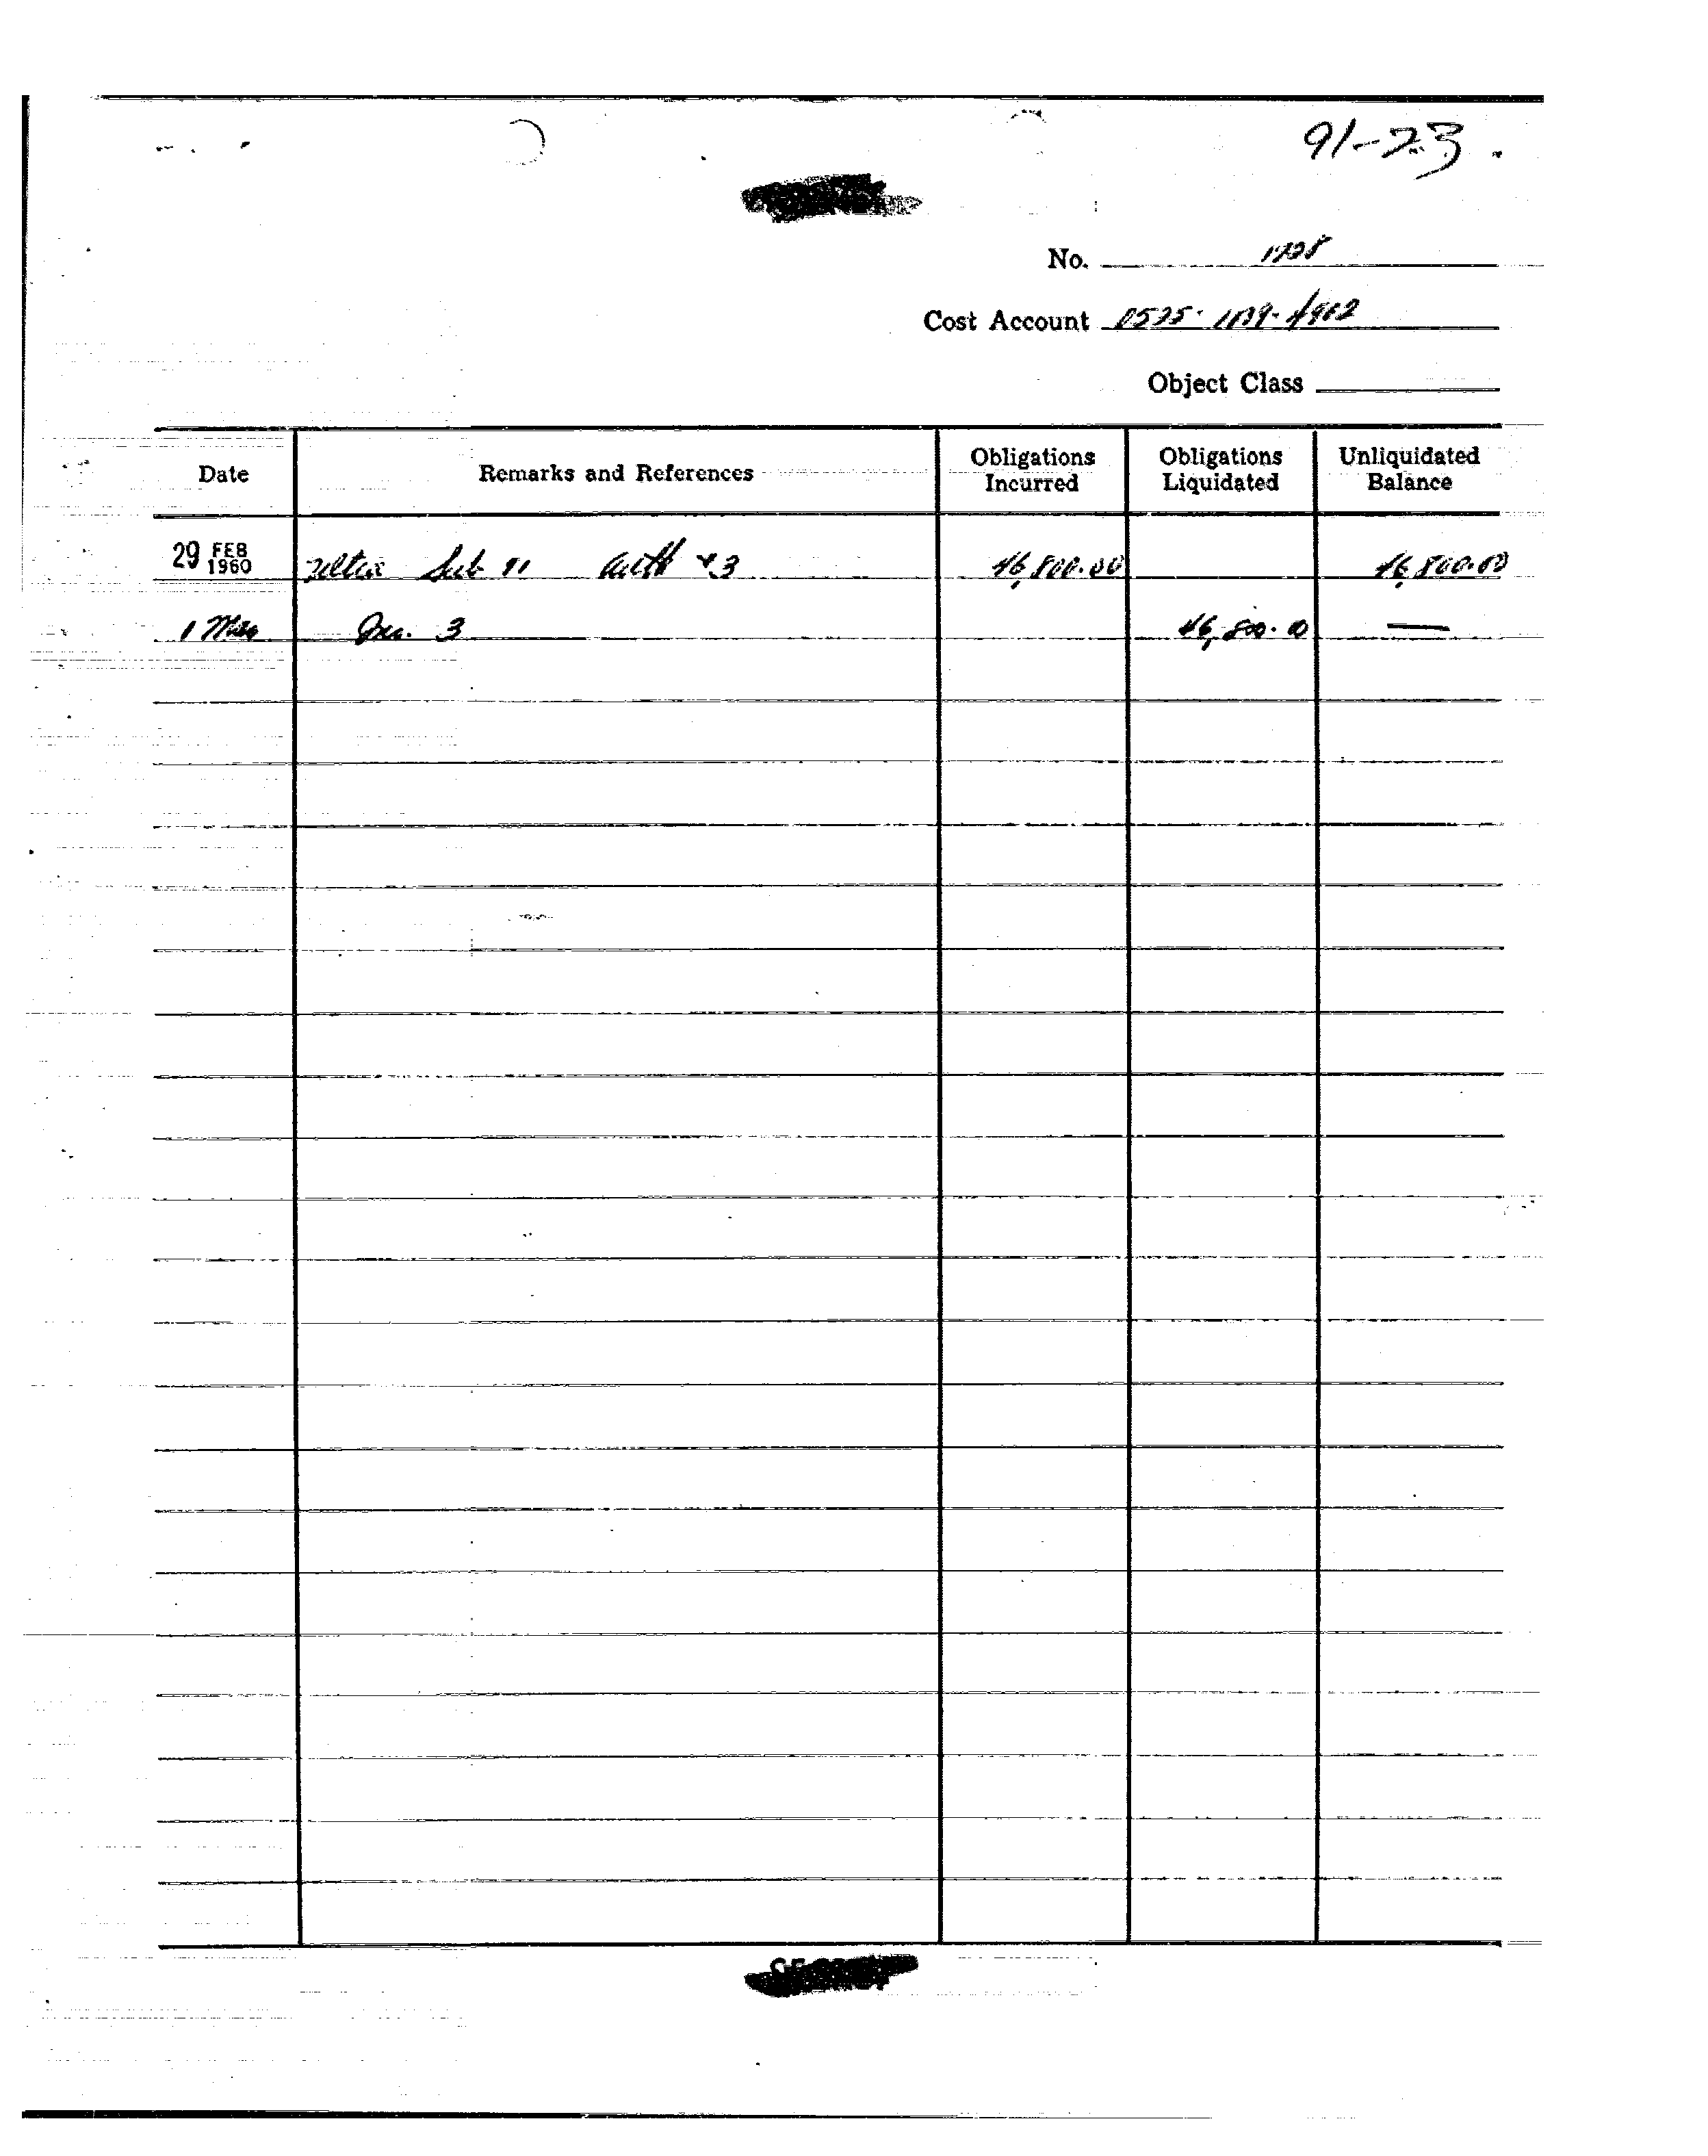 91-23
No. 1728
Cost Account
Object Class
Date Remarks and References Obligations Incurred Obligations Liquidated Unliquidated Balance
29 FEB 1960 Sub 11 Auth 3 46,800.00 46,800.00
1 Mar 3 46,800.00 —